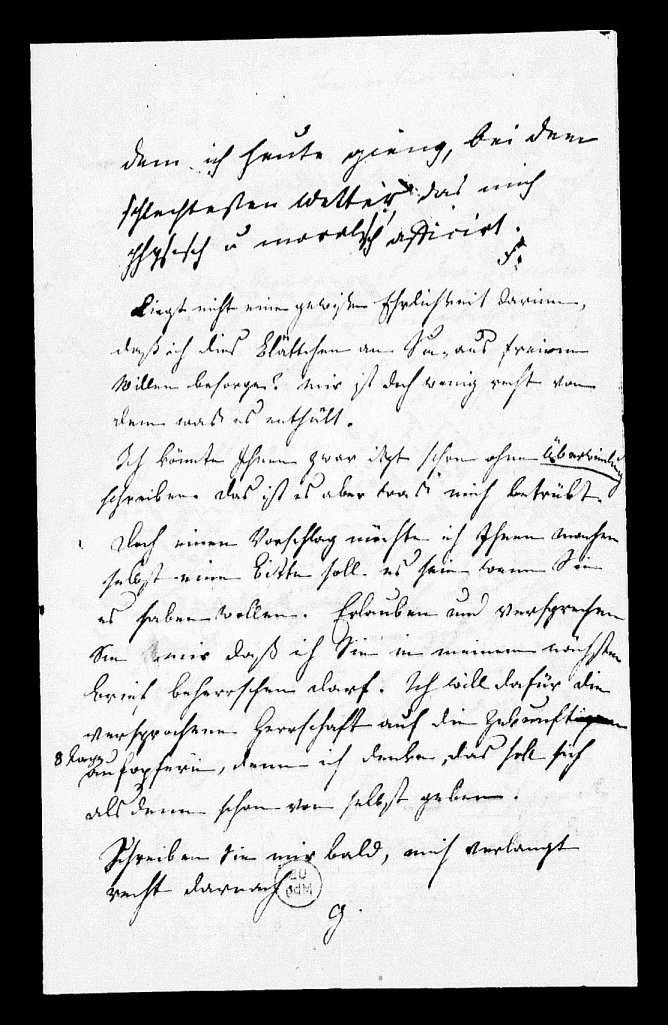 dem ich heute gieng, bei dem
schlechtesten Wetter das mich
physisch u moralisch afficirt.
F:
Liegt nicht eine gewisse Ehrlichkeit darinn,
daß ich dies Blättchen an Sie aus freien
Willen besorge? mir ist doch wenig recht von
dem was es enthält.
Ich könnte Ihnen zwar izt schon ohne Überwindung
schreiben. das ist es aber was mich betrübt.
Doch einen Vorschlag möchte ich Ihnen machen
selbst eine Bitte soll es sein wenn Sie
es haben wollen. Erlauben und versprechen
Sie mir daß ich Sie in meinem nächsten
brief beherrschen darf. Ich will dafür die
versprochene Herrschaft auf die zukünftigen
8 Tage
aufopfern, denn ich denke, das soll sich
alsdenn schon von selbst geben.
Schreiben Sie mir bald, mich verlangt
recht darnach
g.